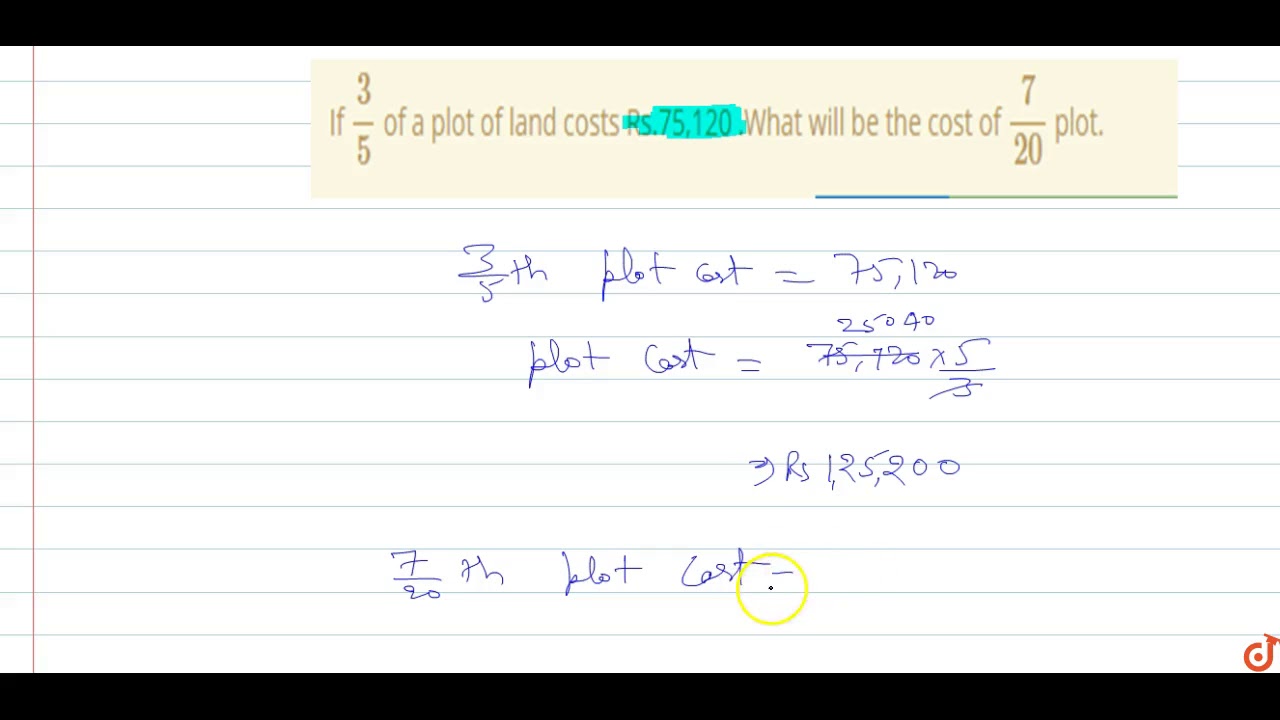 If 3/5 of a plot of land costs Rs.75,120 .What will be the cost of 7/20 plot.
3/5 th plot cost = 75,120
25040
plot cost = 75,120 x 5/3
⇒ Rs 1,25,200
7/20 th plot cost =
d